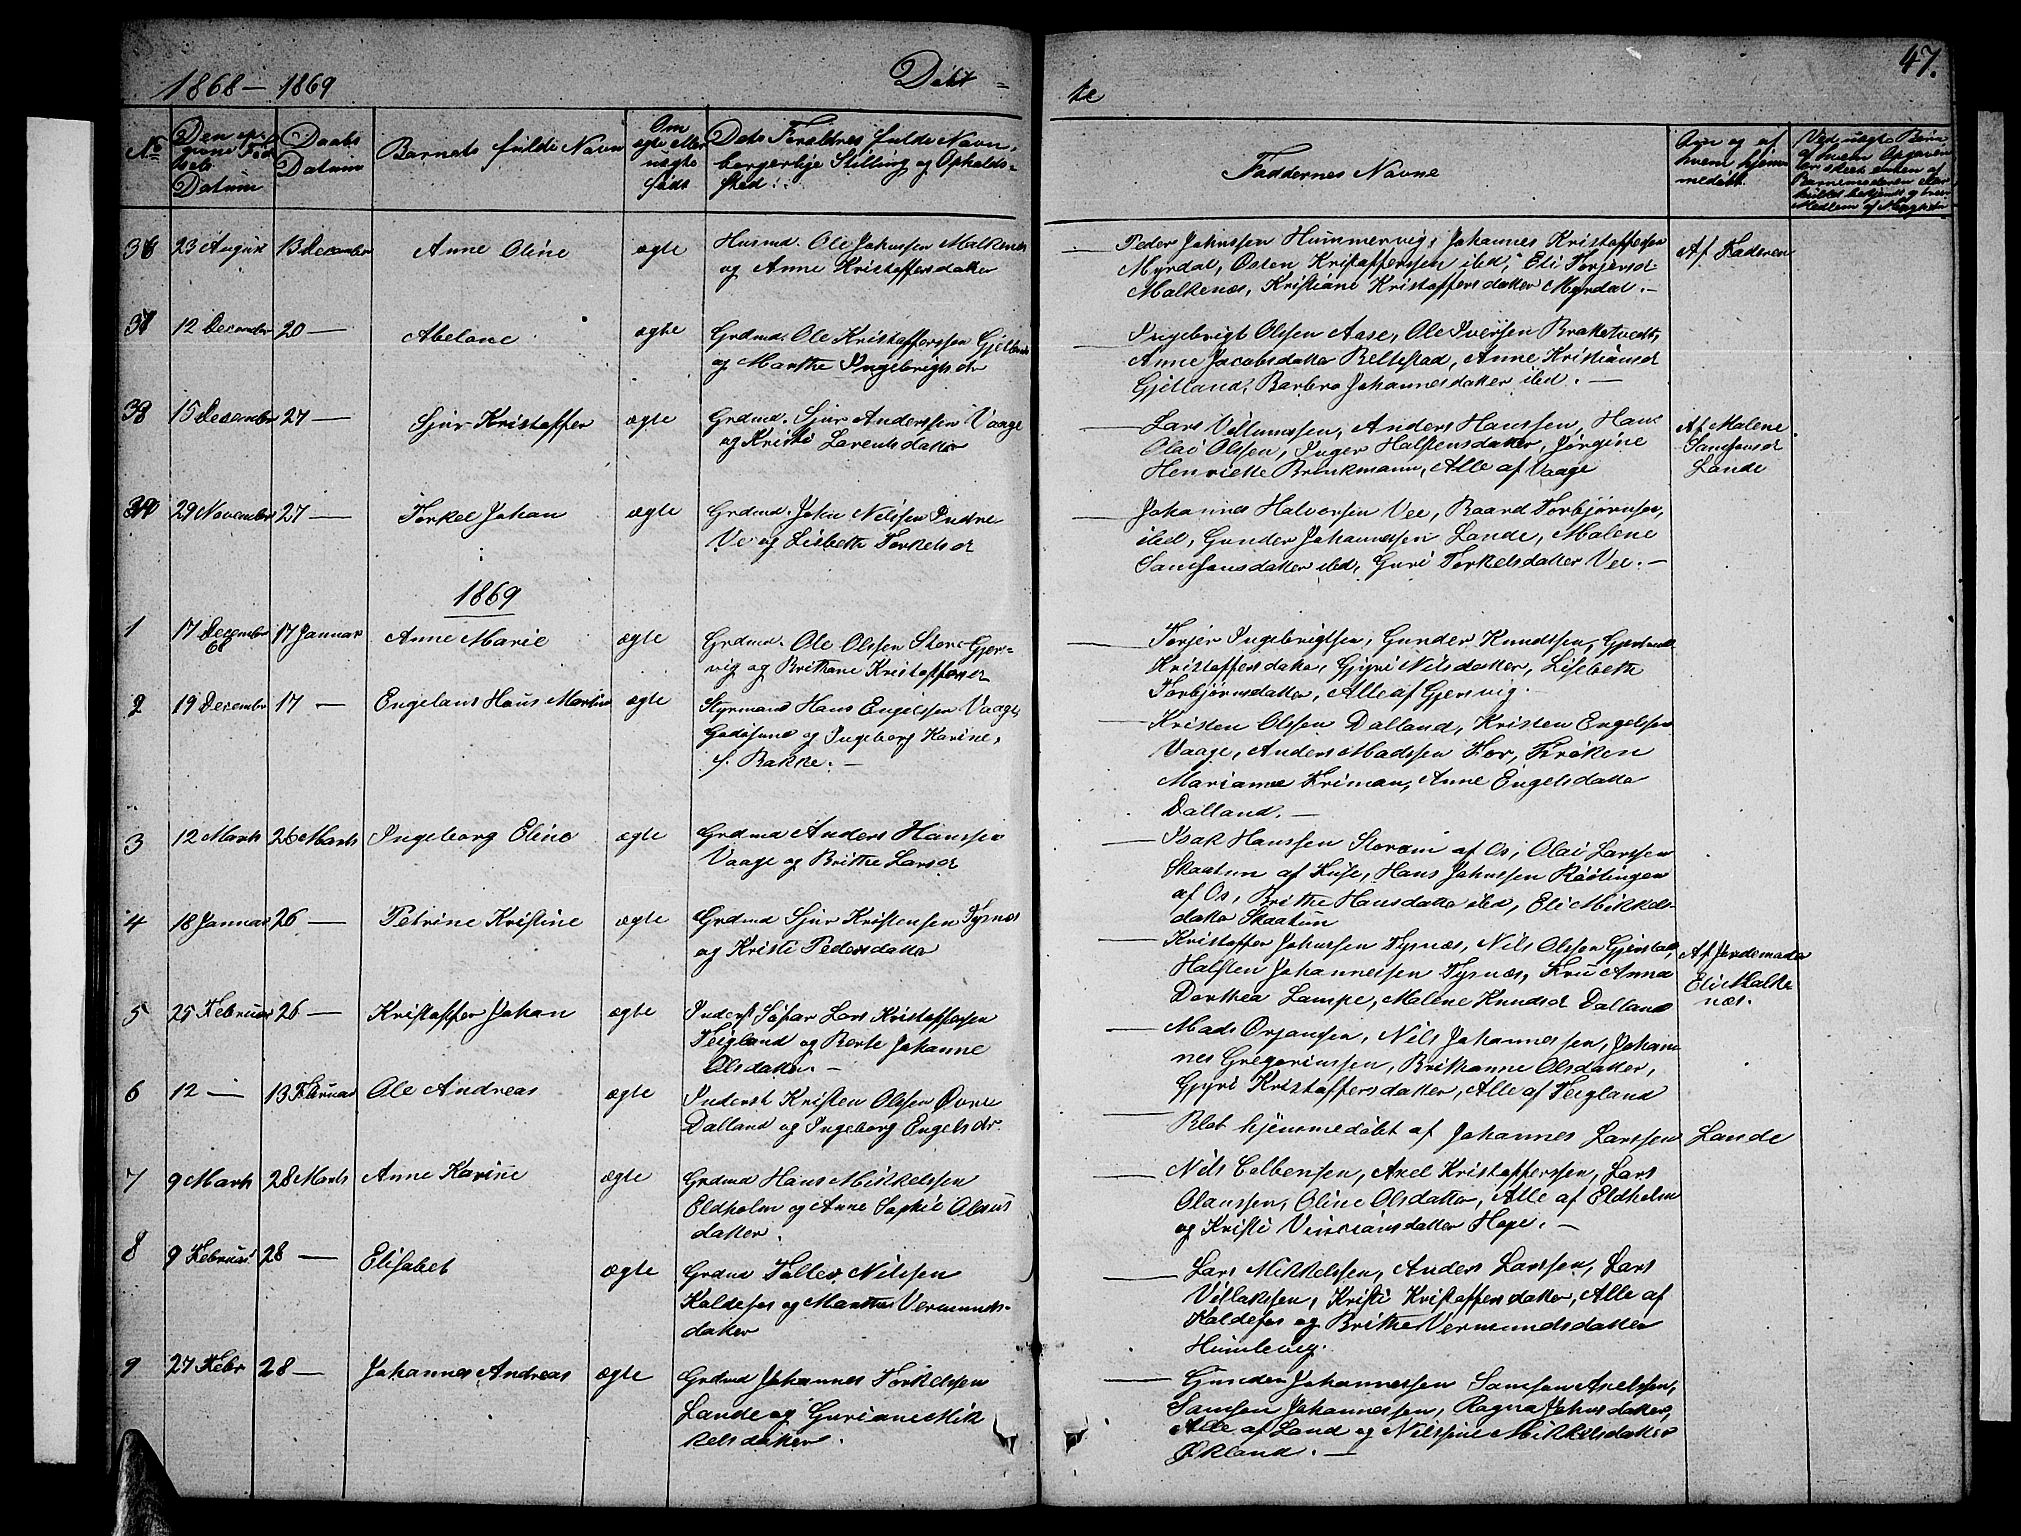 47.
1868 – 1869
Døbt =
te
No
Daabs
Datum
Datum
Barnets fulde Navn
Om
ægte eller
uægte
født
Dets Forældres fulde Navn,
borgerlige Stilling og Opholds-
sted
Faddernes Navne
Om og af
hvem hjem
medøbt.
36 23 August 13 December Anne Oline ægte Husmd. Ole Johnssen Malkenes
og Anne Kristoffersdatter
Peder Johnssen Hummervig, Johannes Kristoffersen
Myrdal, Østen Kristofferssen ibed, Eli Torjersd
Malkenæs, Kristiane Kristoffersdatter Myrdal. –
Af Faderen
37 12 December 20 — Abelone ægte Grdmd. Ole Kristofferssen Gjelland
og Marthe Ingebrigtsdr
Ingebrigt Olssen Aase, Ole Iversen Braketvedt,
Anne Jacobsdatter Beltestad, Anne Kristiansd
Gjelland, Barbro Johannesdatter ibed. –
38 15 December 27 — Sjur Kristoffer ægte Grdmd. Sjur Anderssen Vaage
og Kristi Larentsdatter
Lars Villumssen, Anders Hanssen, Hans
Olai Olssen, Inger Halstensdatter, Jørgine
Henriette Brinkmann, Alle af Vaage
Af Malene
Samsonsd
Lande
39 29 November 27 — Torkel Johan ægte Grdmd. John Nilssen Indre
Ve og Lisbeth Torkelsd
Johannes Halvorsen Vee, Baard Torbjørnsen,
ibed, Gunder Johannessen Lande, Malene
Samsonsdatter ibed, Guri Torkelsdatter Vee. –
1869
1 17 December 68 17 Januar Anne Marie ægte Grdmd. Ole Olssen Store Gjer-
vig og Brithane Kristoffersd
Torjer Ingebrigtsen, Gunder Knudssen,
Kristoffersdatter, Gjyri Nilsdatter, Lisebeth
Torbjørnsdatter, Alle af Gjervig. –
2 19 December 17 — Engelaus Hans Martin ægte Styrmand Hans Engelssen Vaage
Godøsund og Ingeborg Karine,
f. Bakke. –
Kristen Olssen Dalland, Kristen Engelsen
Vaage, Anders Madssen Hor, Frøken
Marianne Friman, Anne Engelsdatter
Dalland. –
3 12 Marts 26 Marts Ingeborg Eline ægte Grdmd Anders Hanssen
Vaage og Brithe Larsd
Isak Hanssen af Os, Olai Larssen
Skaatun af Fuse, Hans Johnssen Røttingen
af Os, Brithe Hansdatter ibed, Eli Mikkels-
datter Skaatun
4 18 Januar 26 — Petrine Kristine ægte Grdmd Sjur Kristensen Tysnæs
og Kristi Pedersdatter
Kristoffer Johnssen Tysnæs, Nils Olssen Gjerstad,
Halsten Johannessen Tysnæs, Fru Anna
Dorthea Lampe, Malene Knudsd Dalland
Af Jordemoder
Eli Malke
næs.
5 25 Februar 26 — Kristoffer Johan ægte Inderst Søfar Lars Kristoffersen
Teigland og Berte Johanne
Olsdatter. –
Mads Ørjanssen, Nils Johannessen, Johan
nes Gregoriussen, Brithanne Olsdatter,
Gjyri Kristoffersdatter, Alle af Teigland
6 12 — 13 Februar Ole Andreas ægte Inderst Kristen Olssen Øvre
Dalland og Ingeborg Engelsdr.
Blot hjemmedøbt af Johannes Larssen Lande
7 9 Marts 28 Marts Anne Karine ægte Grdmd Hans Mikkelssen
Eldholm og Anne Sophie Olaus
datter.
Nils Colbensen, Axel Kristofferssen, Lars
Olaussen, Oline Olsdatter, Alle af Eldholm
og Kristi datter Hope. –
8 9 Februar 28 — Elisabet ægte Grdmd Tollev Nilssen
Kaldefos og Marthe Vermunds-
datter
Lars Mikkelssen, Anders Larssen, Lars
Villakssen, Kristi Kristoffersdatter, Alle af
Kaldefos og Brithe Vermundsdatter
Humlevig.
9 27 Febr 28 — Johannes Andreas ægte Grdmd Johannes Torkelssen
Lande og Guriane Mik
kelsdatter.
Gunder Johannessen Samson Axelssen,
Samson Johannessen, Ragna Johnsdatter,
Alle af Land og Nilssine Mikkelsdatter
Økland. –